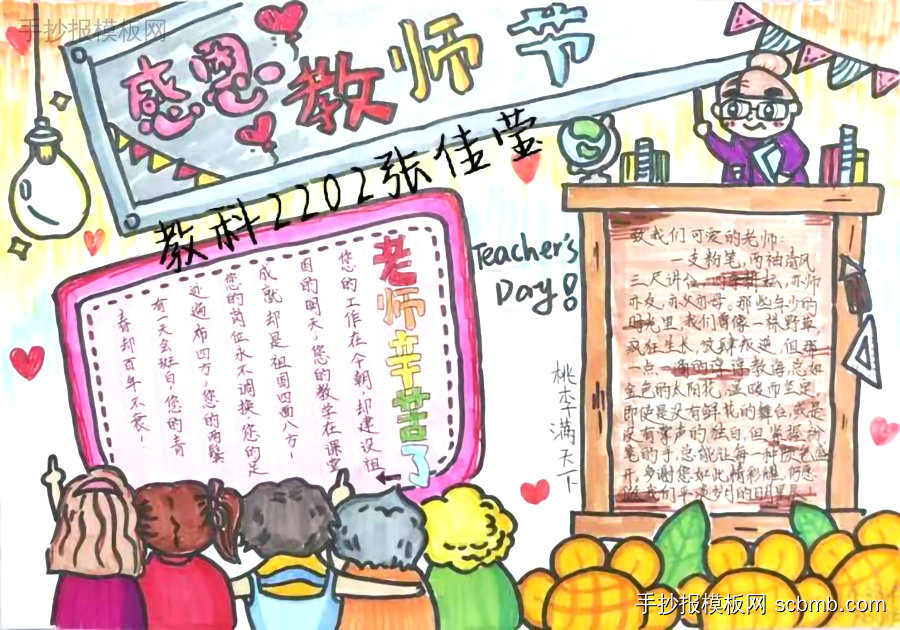 手抄报模板网
感恩教师节
教科2202张佳莹
老师辛苦了
您的工作在今朝,却建设祖
国的明天;您的教学在课堂
成就却是祖国四面八方!
您的岗位永不调换,您的足
迹遍布四方;您的两鬓
有天会斑白,您的青
春却百年不衰!
Teacher's
Day!
桃李满天下
致我们可爱的老师:
一支粉笔,两袖清风
三尺讲台,亦师
亦友,亦父亦母。那些年少的
时光里,我们曾像一株野草
疯狂生长,放肆叛逆,但那
一点一滴的谆谆教诲,总如
金色的太阳花,温暖而坚定
即使是没有鲜花的舞台,或是
没有掌声的独白,但紧握粉
笔的手,总能让每一种颜色盛
开。多谢您如此精彩
我们平凡岁月的
手抄报模板网 scbmb.com